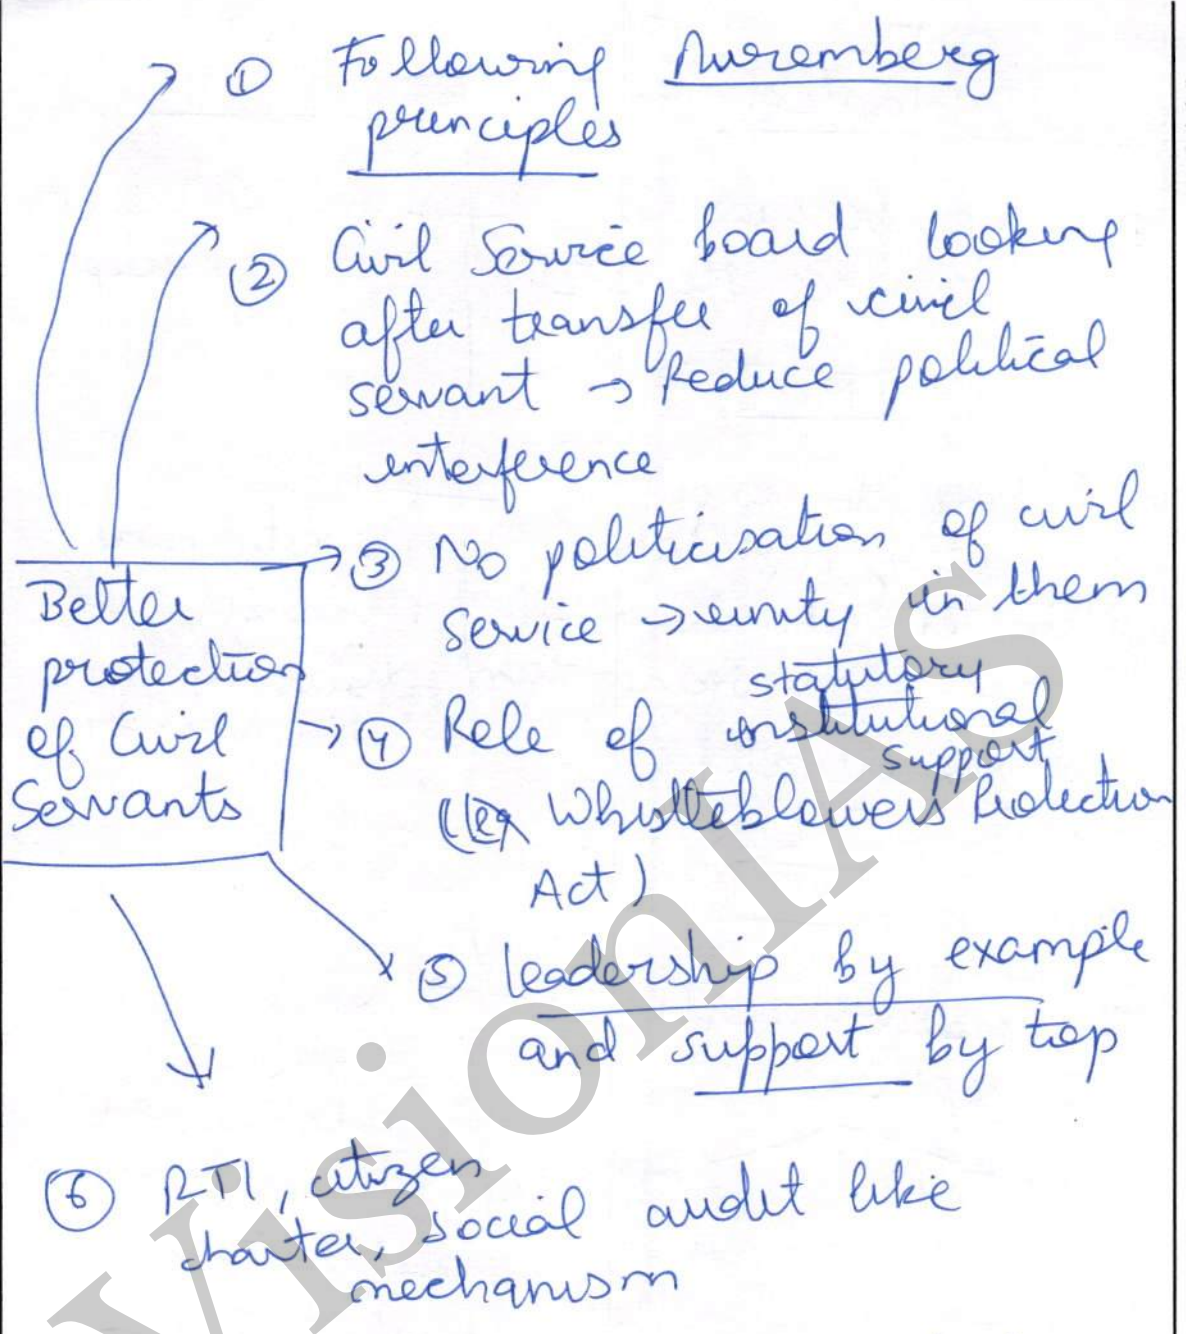 ① Following Nuremberg
principles
② Civil Service board looking
after transfer of civil
servant → Reduce political
interference
→ ③ No politicisation of civil
Service → unity in them
Better
protection
of Civil
Servants
statutory
→ ④ Role of institutional
support
(eg Whistleblowers Protection
Act)
⑤ leadership by example
and support by top
⑥ RTI, citizen
charter, social audit like
mechanism
VisionIAS